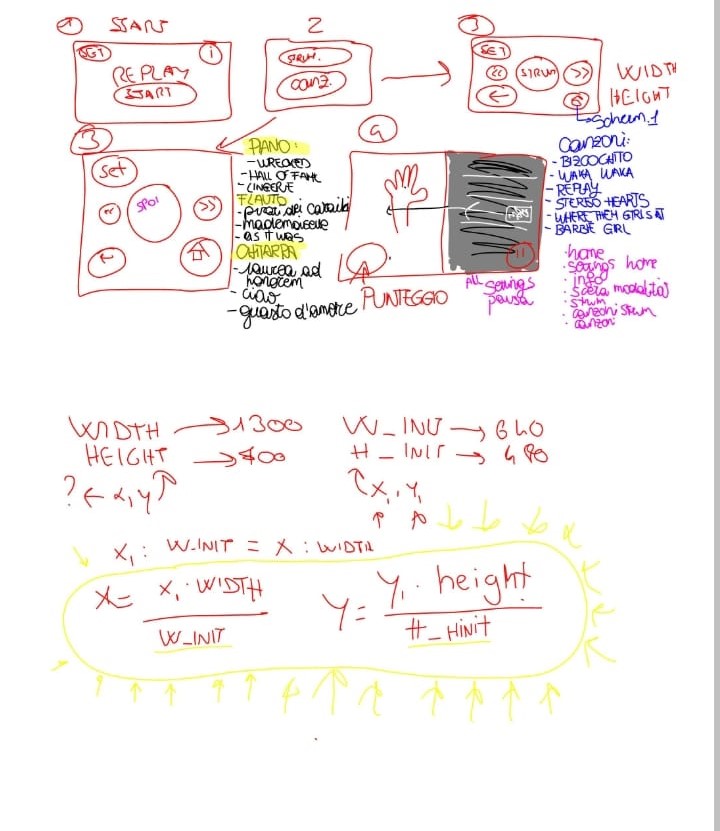 1 START
2
3
SET
i
REPLAY
START
STRUM.
CANZ.
SET
<<
STRUM
>>
←
WIDTH
HEIGHT
Schem. 1
3
Set
<<
SPOT
>>
←
PIANO:
- WRECKED
- HALL OF FAME
FLAUTO
- mademoiselle
- as it was
CHITARRA
- laurea ad
honorem
- ciao
- guasto d'amore
4
PUNTEGGIO
All Settings
pausa
Canzoni:
- BIZCOCHITO
- WAKA WAKA
- REPLAY
- STEREO HEARTS
- WHERE THEM GIRLS AT
- BARBIE GIRL
· home
· settings home
· info
· scelta modalità
· strum
· canzoni strum
· canzoni
WIDTH → 1300
HEIGHT → 700
? ← x, y
W_INIT → 640
H_INIT → 480
(x₁, y₁
x₁ : W_INIT = x : WIDTH
x = x₁ · WIDTH
W_INIT
y = y₁ · height
H_HINIT